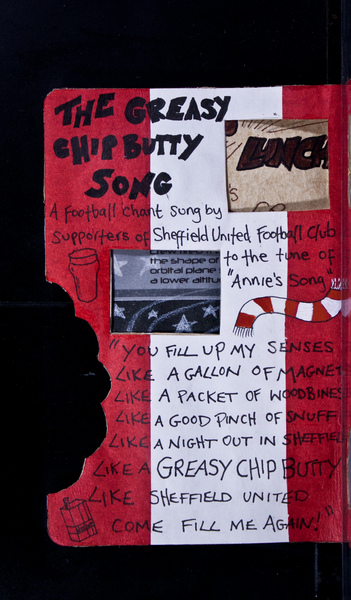 THE GREASY
CHIP BUTTY
SONG
LUNCH
A Football chant sung by
supporters of Sheffield United Football Club
to the tune of
"Annie's Song"
the shape of
orbital plane
a lower altitu
"YOU FILL UP MY SENSES
LIKE A GALLON OF MAGNET
LIKE A PACKET OF WOODBINES
LIKE A GOOD PINCH OF SNUFF
LIKE A NIGHT OUT IN SHEFFIEL
LIKE A GREASY CHIP BUTTY
LIKE SHEFFIELD UNITED
COME FILL ME AGAIN!"